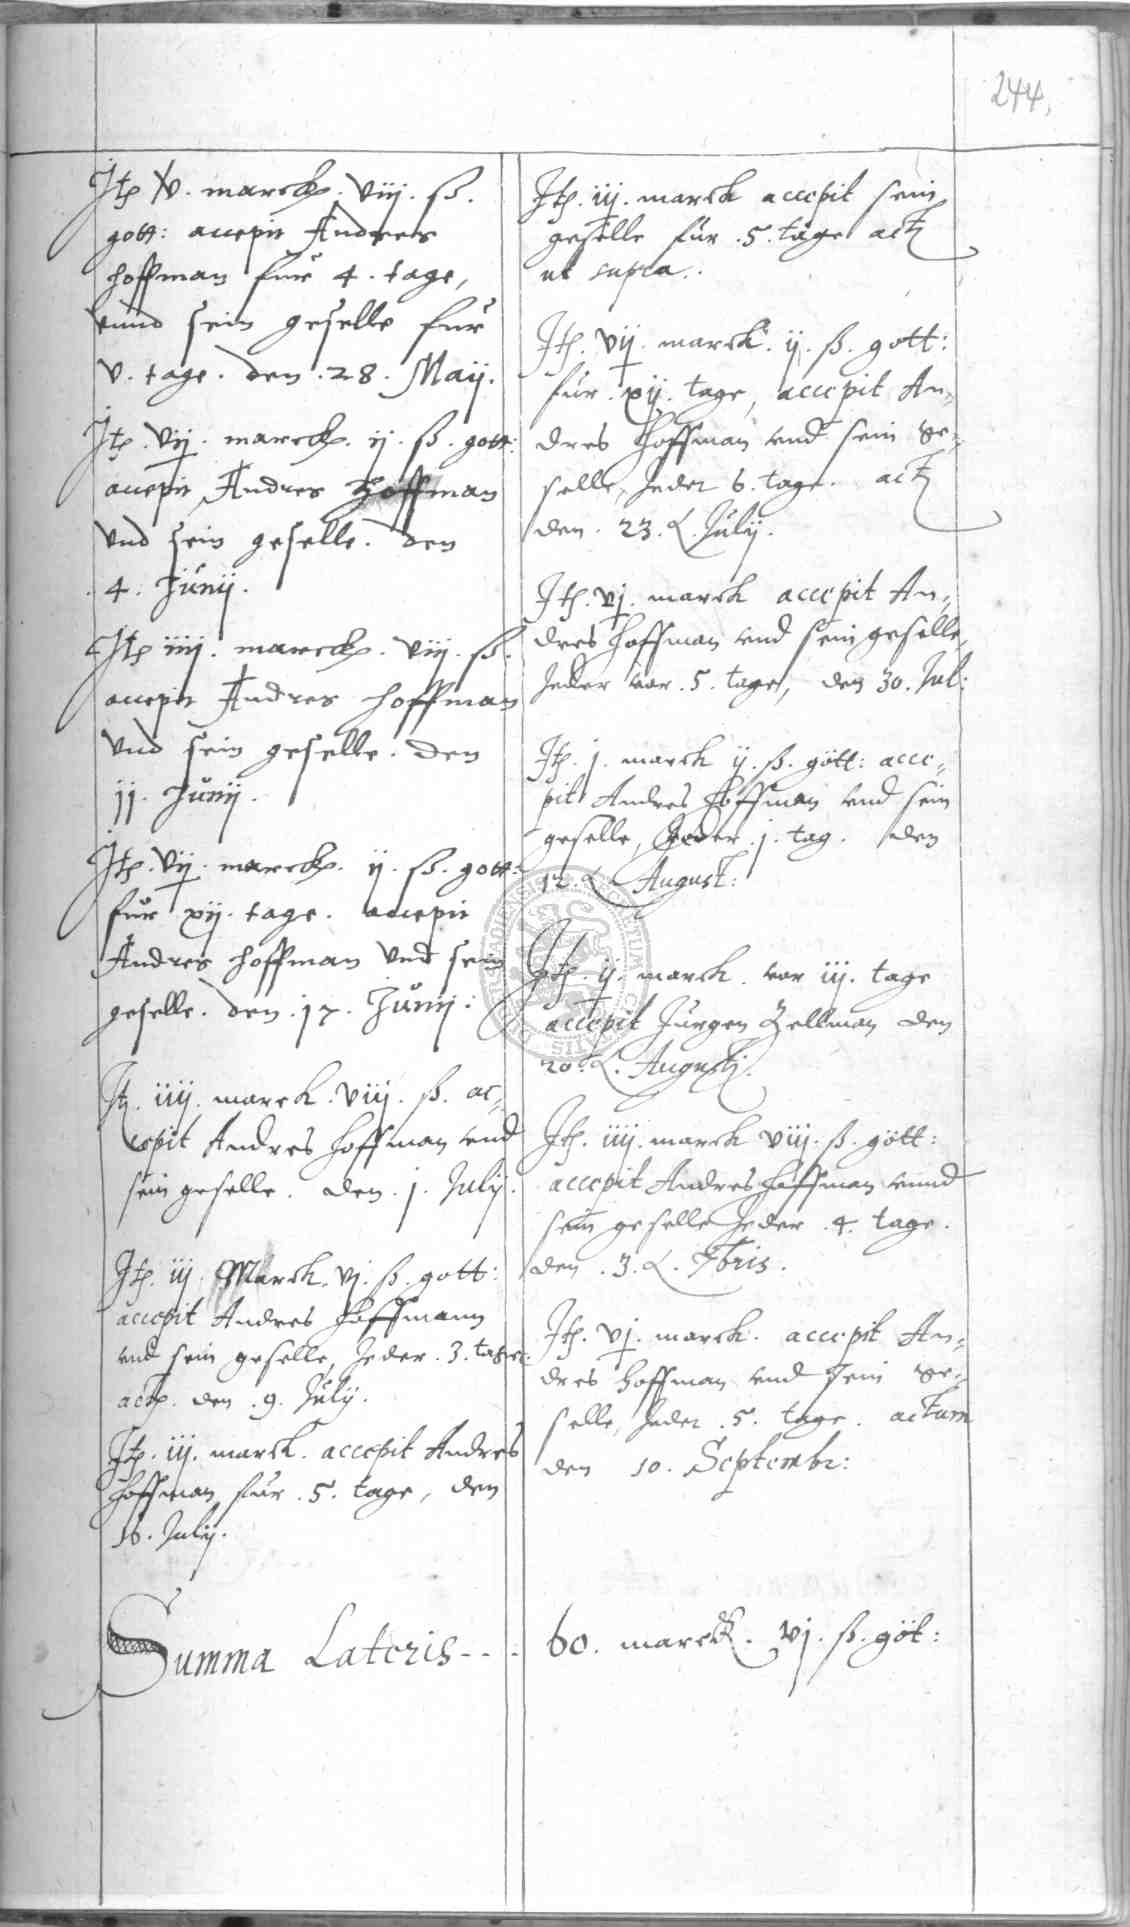 244.
Jtem V. marck. viij. ß.
gott: accepit Andrees
hoffman fur 4. tage,
vnnd sein geselle fur
v. tage. den .28. Maij.
Jtem. vij. marck. ij. ß. gott:
accepit Andres Hoffman
vnd sein geselle. den
.4. Junij.
Jtem iiij. marck. viij. ß.
accepit Andres hoffman
vnd sein geselle. den
jj. Junij.
Jtem. vij. marck. ij. ß. gott:
fur xij. tage. accepit
Andres hoffman vnd sein
geselle. den .17. Junij.
Jt. iiij. marck. viij. ß. ac„
cepit Andres hoffman vnd
sein geselle. den .j. Julij.
Jtem. iij. Marck. vj. ß. gott:
accepit Andres Hoffmann
vnd sein geselle, Jeder .3. tage.
act. den .9. Julij.
Jtem. iij. marck. accepit Andres
hoffman fur .5. tage, den
16. Julij.
Jtem. iij. marck accepit sein
geselle für .5. tage act
ut supra.
Jtem. vij. marck. ij. ß. gott:
für .xij. tage, accepit An„
dres Hoffman vnd sein ge„
selle, Jeder 6. tage. act
den .23. Julij.
Jtem. vj. marck accepit An„
dres hoffman vnd sein geselle,
Jeder vor .5. tage, den 30. Jul:
Jtem. j. marck ij. ß. gött: acce„
pit Andres Hoffman vnd sein
geselle, Jeder .j. tag. den
12. August:
Jtem. ij. marck. vor iij. tage
accepit Jurgen Zellman den
20. Augusti.
Jtem. iiij. marck viij. ß. gött:
accepit Andres Hoffman vnnd
sein geselle Jeder .4. tage.
den .3. 7bris.
Jtem. vj. marck. accepit An„
dres hoffman vnd sein ge„
selle, Jeder .5. tage. actum
den 10. Septembr:
Summa Lateris - - - 60. marck. vj. ß. göt: